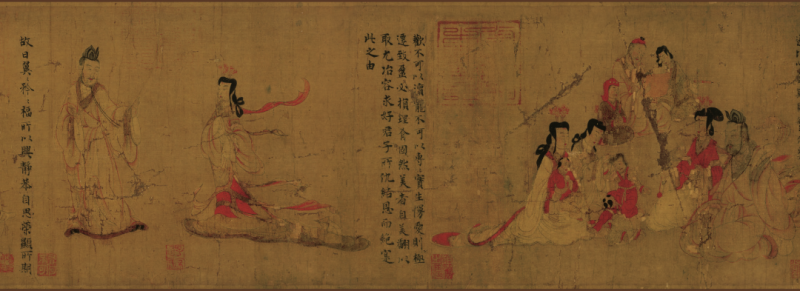 歡不可以瀆寵不可以專實生慢愛則極
遷致盈必損理有固然美者自美翩以
取尤冶容求好君子所讎結恩而絕寔
此之由
故曰翼〻矜〻福所以興靜恭自思榮顯所期